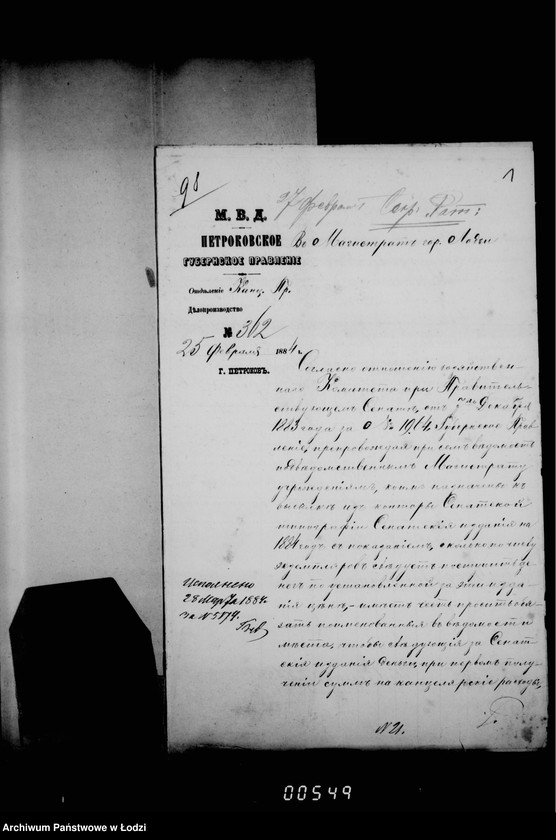 98
1
27 Февраля
М. В. Д.
ПЕТРОКОВСКОЕ
ГУБЕРНСКОЕ ПРАВЛЕНІЕ
Отдѣленіе Канц. Пр.
Дѣлопроизводство
№ 362
25 Февраля 1884 г.
Г. ПЕТРОКОВЪ.
Въ Магистратъ гор. Лодзи
Согласно отношенію хозяйствен-
наго Комитета при Правитель-
ствующемъ Сенатѣ, отъ Декабря
1883 года за № 1964, Губернское Прав
леніе, препровождая при семъ вѣдомость
подвѣдомственнымъ Магистрату
учрежденіямъ, коимъ назначено къ
высылкѣ изъ конторы Сенатской
типографіи Сенатскія изданія на
1884 годъ съ показаніемъ, сколько по числу
экземпляровъ слѣдуетъ причитаться де
негъ по установленной за эти изда
нія цѣнѣ, имѣетъ честь просить обя
зать поименованныя въ вѣдомости
мѣста, чтобы слѣдующія за Сенат
скія изданія деньги, при первомъ полу-
ченіи суммъ на канцелярскіе расходы,
Исполнено
28 Марта 1884.
За № 5174.
N 21.
00549
Archiwum Państwowe w Łodzi